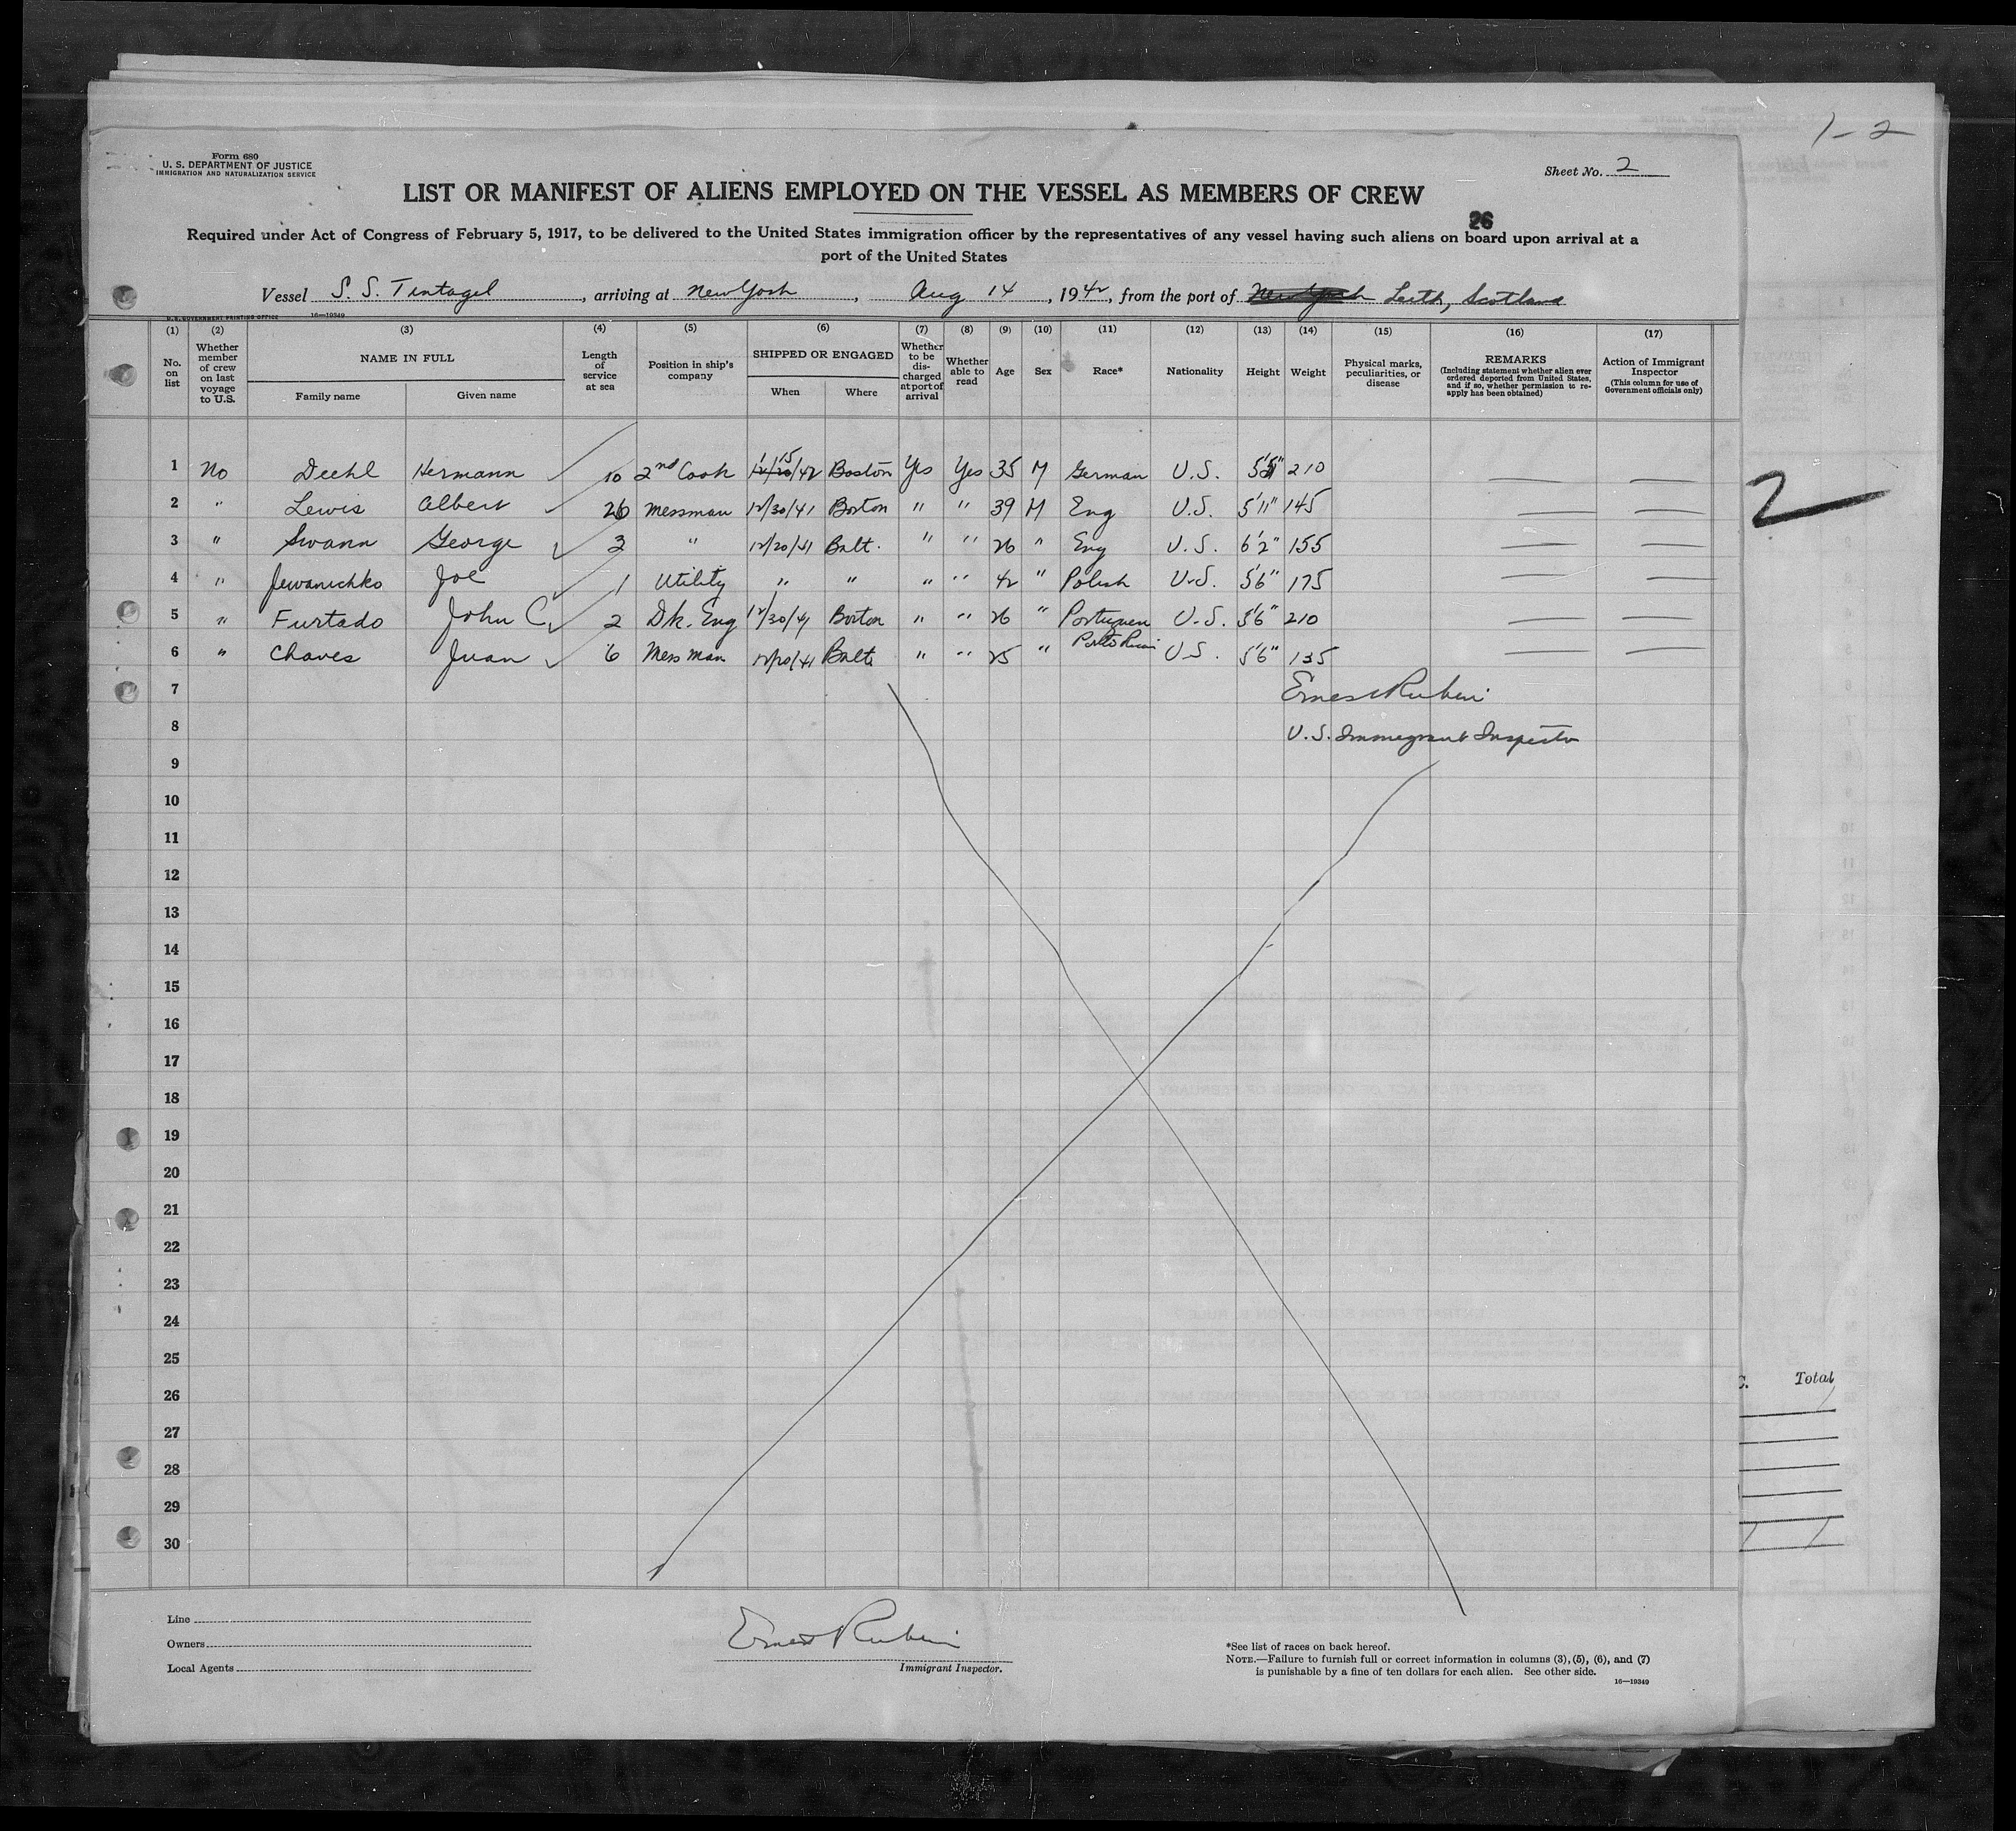 1-2
Form 680
U. S. DEPARTMENT OF JUSTICE
IMMIGRATION AND NATURALIZATION SERVICE
Sheet No. 2
LIST OR MANIFEST OF ALIENS EMPLOYED ON THE VESSEL AS MEMBERS OF CREW
26
Required under Act of Congress of February 5, 1917, to be delivered to the United States immigration officer by the representatives of any vessel having such aliens on board upon arrival at a
port of the United States
Vessel S. S. Tintagel, arriving at New York, Aug 14, 1942, from the port of Leith, Scotland
U. S. GOVERNMENT PRINTING OFFICE 16—19349
(1) No. on list
(2) Whether member of crew on last voyage to U.S.
(3) NAME IN FULL Family name Given name
(4) Length of service at sea
(5) Position in ship's company
(6) SHIPPED OR ENGAGED When Where
(7) Whether to be discharged at port of arrival
(8) Whether able to read
(9) Age
(10) Sex
(11) Race*
(12) Nationality
(13) Height
(14) Weight
(15) Physical marks, peculiarities, or disease
(16) REMARKS (Including statement whether alien ever ordered deported from United States, and if so, whether permission to reapply has been obtained)
(17) Action of Immigrant Inspector (This column for use of Government officials only)
1 No Diehl Hermann 10 2nd Cook 1/15/42 Boston Yes Yes 35 M German U.S. 5'5" 210
2 " Lewis Albert 26 Messman 12/30/41 Boston " " 39 M Eng U.S. 5'11" 145
2
3 " Swann George 3 " 12/20/41 Balt. " " 26 " Eng U.S. 6'2" 155
4 " Jewanichko Joe 1 Utility " " " " 42 " Polish U.S. 5'6" 175
5 " Furtado John C. 2 Dk. Eng 12/30/41 Boston " " 26 " Portuguese U.S. 5'6" 210
6 " Chaves Juan 6 Mess man 12/20/41 Balto " " 25 " Porto Rican U.S. 5'6" 135
7 Ernest Rubin
8 U.S. Immigrant Inspector
9
10
11
12
13
14
15
16
17
18
19
20
21
22
23
24
25
26
27
28
29
30
Total
Line
Owners
Local Agents
Ernest Rubin
Immigrant Inspector.
*See list of races on back hereof.
NOTE.—Failure to furnish full or correct information in columns (3), (5), (6), and (7)
is punishable by a fine of ten dollars for each alien. See other side.
16—19349